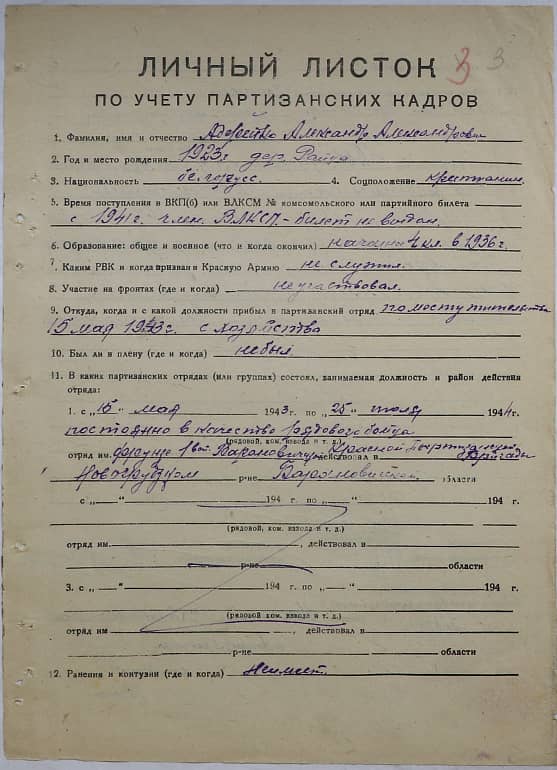 3 3
ЛИЧНЫЙ ЛИСТОК
ПО УЧЕТУ ПАРТИЗАНСКИХ КАДРОВ
1. Фамилия, имя и отчество Александр Александрович
2. Год и место рождения 1923г дер.
3. Национальность белорусс. 4. Соцположение крестьянин
5. Время поступления в ВКП(б) или ВЛКСМ № комсомольского или партийного билета
с 1941г. член ВЛКСМ - билет не выдан.
6. Образование: общее и военное (что и когда окончил) 4 кл. в 1936г.
7. Каким РВК и когда призван в Красную Армию не служил.
8. Участие на фронтах (где и когда) не участвовал.
9. Откуда, когда и с какой должности прибыл в партизанский отряд по
15 мая 1943г. с хозяйства
10. Был ли в плену (где и когда) не был
11. В каких партизанских отрядах (или группах) состоял, занимаемая должность и район действия
отряда:
1. с „15" мая 1943г. по „25" июля 1944г.
постоянно в качестве рядового бойца
(рядовой, ком. взвода и т. д.)
отряд им. Фрунзе 1вой Барановичской, действовал в бригады
Новогрудском р-не Барановичской области
с „ —" 194 г. по „ —" 194 г.
(рядовой, ком. взвода и т. д.)
отряд им. , действовал в
р-не области
3. с „ —" 194 г. по „—" 194 г.
(рядовой, ком. взвода и т. д.)
отряд им , действовал в
р-не области
12. Ранения и контузии (где и когда) Не имеет.